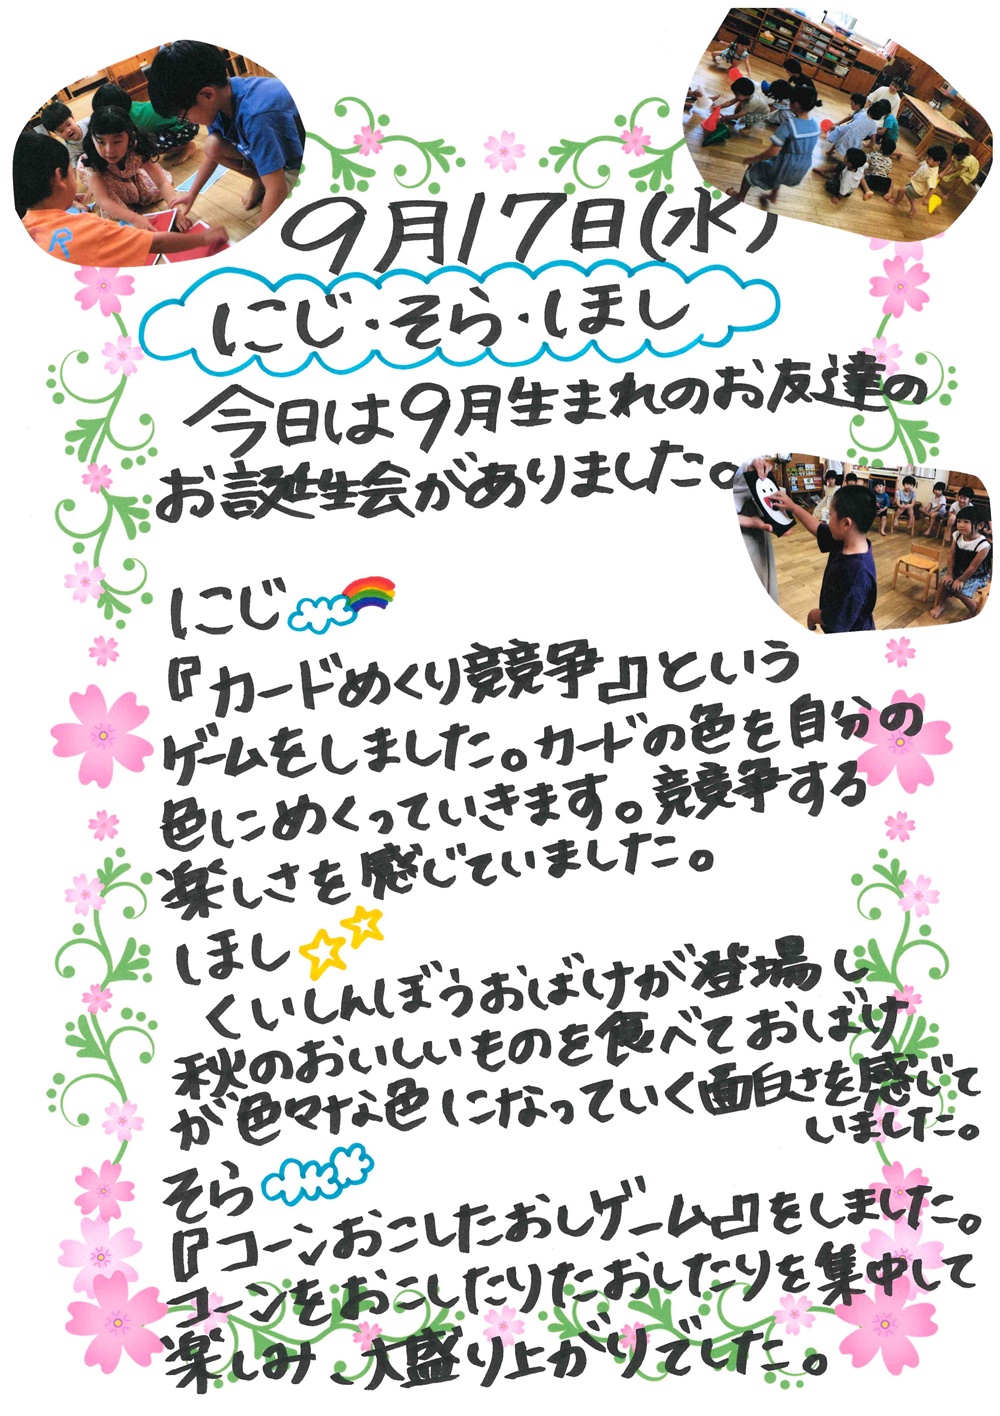 9月17日(水)
にじ・そら・ほし
今日は9月生まれのお友達の
お誕生会がありました。
にじ
『カードめくり競争』という
ゲームをしました。カードの色を自分の
色にめくっていきます。競争する
楽しさを感じていました。
ほし
くいしんぼうおばけが登場し
秋のおいしいものを食べておばけ
が色々な色になっていく面白さを感じて
いました。
そら
『コーンおこしたおしゲーム』をしました。
コーンをおこしたりたおしたりを集中して
楽しみ、大盛り上がりでした。
R